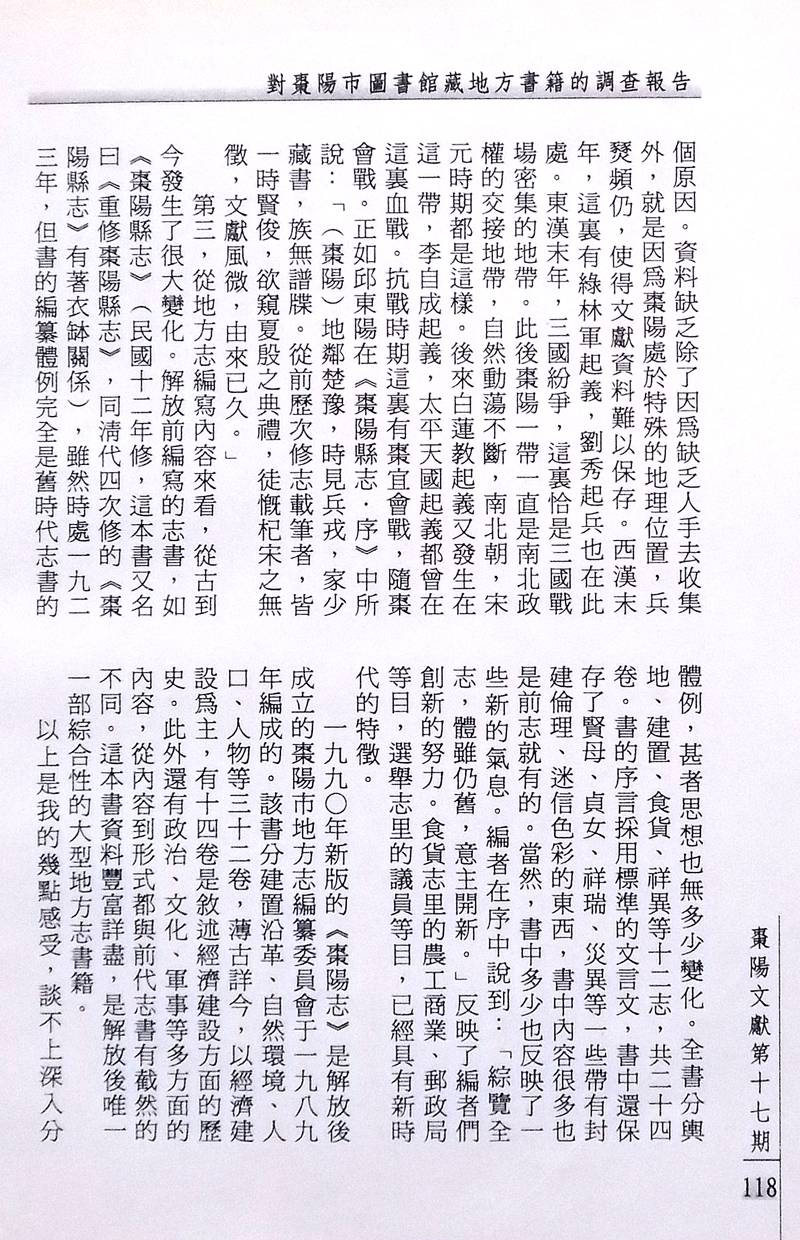 對棗陽市圖書館藏地方書籍的調查報告
個原因。資料缺乏除了因爲缺乏人手去收集
外，就是因爲棗陽處於特殊的地理位置，兵
燹頻仍，使得文獻資料難以保存。西漢末
年，這裏有綠林軍起義，劉秀起兵也在此
處。東漢末年，三國紛爭，這裏恰是三國戰
場密集的地帶。此後棗陽一帶一直是南北政
權的交接地帶，自然動蕩不斷，南北朝，宋
元時期都是這樣。後來白蓮教起義又發生在
這一帶，李自成起義，太平天國起義都曾在
這裏血戰。抗戰時期這裏有棗宜會戰，隨棗
會戰。正如邱東陽在《棗陽縣志·序》中所
說：「（棗陽）地鄰楚豫，時見兵戎，家少
藏書，族無譜牒。從前歷次修志載筆者，皆
一時賢俊，欲窺夏殷之典禮，徒慨杞宋之無
徵，文獻風微，由來已久。」
第三，從地方志編寫內容來看，從古到
今發生了很大變化。解放前編寫的志書，如
《棗陽縣志》（民國十二年修，這本書又名
曰《重修棗陽縣志》，同清代四次修的《棗
陽縣志》有著衣缽關係），雖然時處一九二
三年，但書的編纂體例完全是舊時代志書的
體例，甚者思想也無多少變化。全書分輿
地、建置、食貨、祥異等十二志，共二十四
卷。書的序言採用標準的文言文，書中還保
存了賢母、貞女、祥瑞、災異等一些帶有封
建倫理、迷信色彩的東西，書中內容很多也
是前志就有的。當然，書中多少也反映了一
些新的氣息。編者在序中說到：「綜覽全
志，體雖仍舊，意主開新。」反映了編者們
創新的努力。食貨志里的農工商業、郵政局
等目，選舉志里的議員等目，已經具有新時
代的特徵。
一九九〇年新版的《棗陽志》是解放後
成立的棗陽市地方志編纂委員會于一九八九
年編成的。該書分建置沿革、自然環境、人
口、人物等三十二卷，薄古詳今，以經濟建
設爲主，有十四卷是敘述經濟建設方面的歷
史。此外還有政治、文化、軍事等多方面的
內容，從內容到形式都與前代志書有截然的
不同。這本書資料豐富詳盡，是解放後唯一
一部綜合性的大型地方志書籍。
以上是我的幾點感受，談不上深入分
棗陽文獻第十七期
118